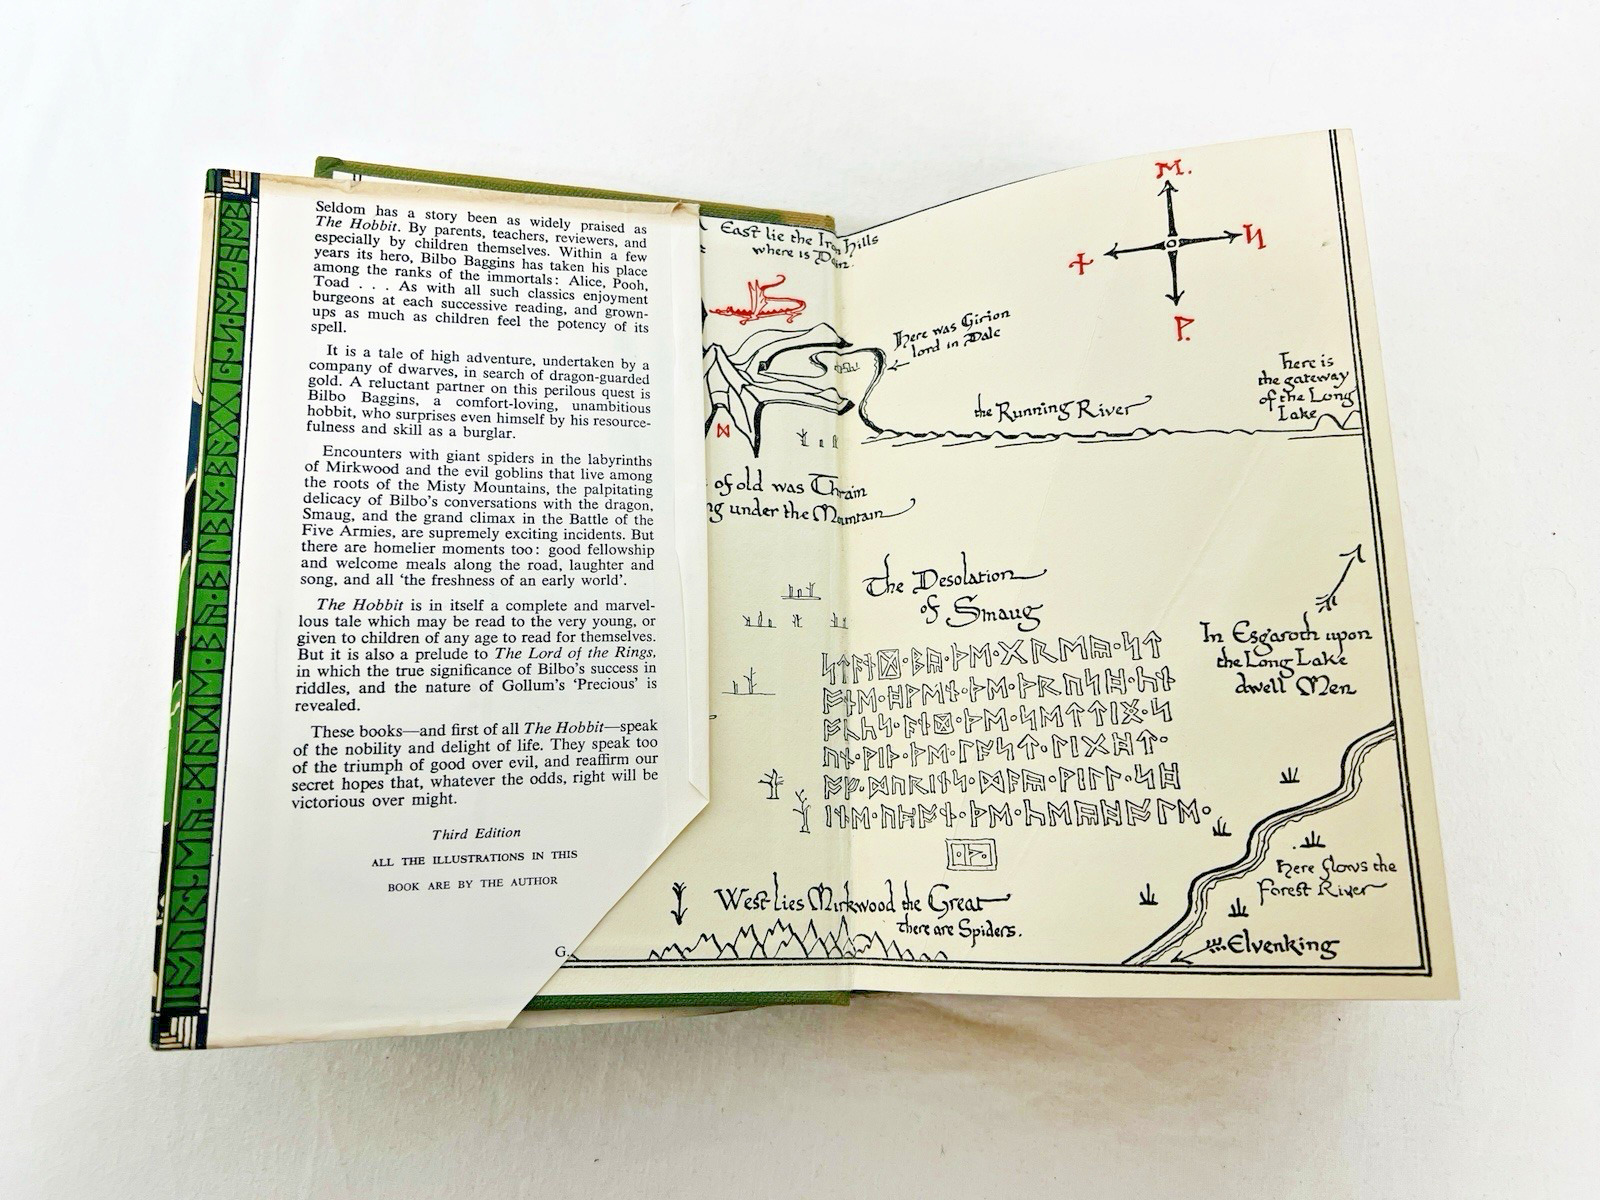 Seldom has a story been as widely praised as
The Hobbit. By parents, teachers, reviewers, and
especially by children themselves. Within a few
years its hero, Bilbo Baggins has taken his place
among the ranks of the immortals: Alice, Pooh,
Toad . . . As with all such classics enjoyment
burgeons at each successive reading, and grown-
ups as much as children feel the potency of its
spell.
It is a tale of high adventure, undertaken by a
company of dwarves, in search of dragon-guarded
gold. A reluctant partner on this perilous quest is
Bilbo Baggins, a comfort-loving, unambitious
hobbit, who surprises even himself by his resource-
fulness and skill as a burglar.
Encounters with giant spiders in the labyrinths
of Mirkwood and the evil goblins that live among
the roots of the Misty Mountains, the palpitating
delicacy of Bilbo's conversations with the dragon,
Smaug, and the grand climax in the Battle of the
Five Armies, are supremely exciting incidents. But
there are homelier moments too: good fellowship
and welcome meals along the road, laughter and
song, and all 'the freshness of an early world'.
The Hobbit is in itself a complete and marvel-
lous tale which may be read to the very young, or
given to children of any age to read for themselves.
But it is also a prelude to The Lord of the Rings,
in which the true significance of Bilbo's success in
riddles, and the nature of Gollum's 'Precious' is
revealed.
These books—and first of all The Hobbit—speak
of the nobility and delight of life. They speak too
of the triumph of good over evil, and reaffirm our
secret hopes that, whatever the odds, right will be
victorious over might.
Third Edition
ALL THE ILLUSTRATIONS IN THIS
BOOK ARE BY THE AUTHOR
G.
East lie the Iron Hills
where is Dain.
ᛗ.
ᛋ
ᚾ
ᚹ.
Here was Girion
lord in Dale
the Running River
Here is
the gateway
of the Long
Lake
ᛞ
of old was Thrain
ng under the Mountain
The Desolation
of Smaug
ᛋᛏᚪᚾᛞ·ᛒᚣ·ᚦᛖ·ᚷᚱᛖᚣ·ᛋᛏ
ᚩᚾᛖ·ᚻᚹᛖᚾ·ᚦᛖ·ᚦᚱᚢᛋᚻ·ᚳᚾ
ᚩᚳᚳᛋ·ᚪᚾᛞ·ᚦᛖ·ᛋᛖᛏᛏᛁᛝ·ᛋ
ᚢᚾ·ᚹᛁᚦ·ᚦᛖ·ᛚᚪᛋᛏ·ᛚᛁᚷᚻᛏ·
ᚩᚠ·ᛞᚢᚱᛁᚾᛋ·ᛞᚪᚣ·ᚹᛁᛚᛚ·ᛋᚻ
ᛁᚾᛖ·ᚢᛈᚩᚾ·ᚦᛖ·ᚳᛖᚣᚻᚩᛚᛖ·
·ᚦ·
In Esgaroth upon
the Long Lake
dwell Men
Here flows the
Forest River
Elvenking
West lies Mirkwood the Great
there are Spiders.